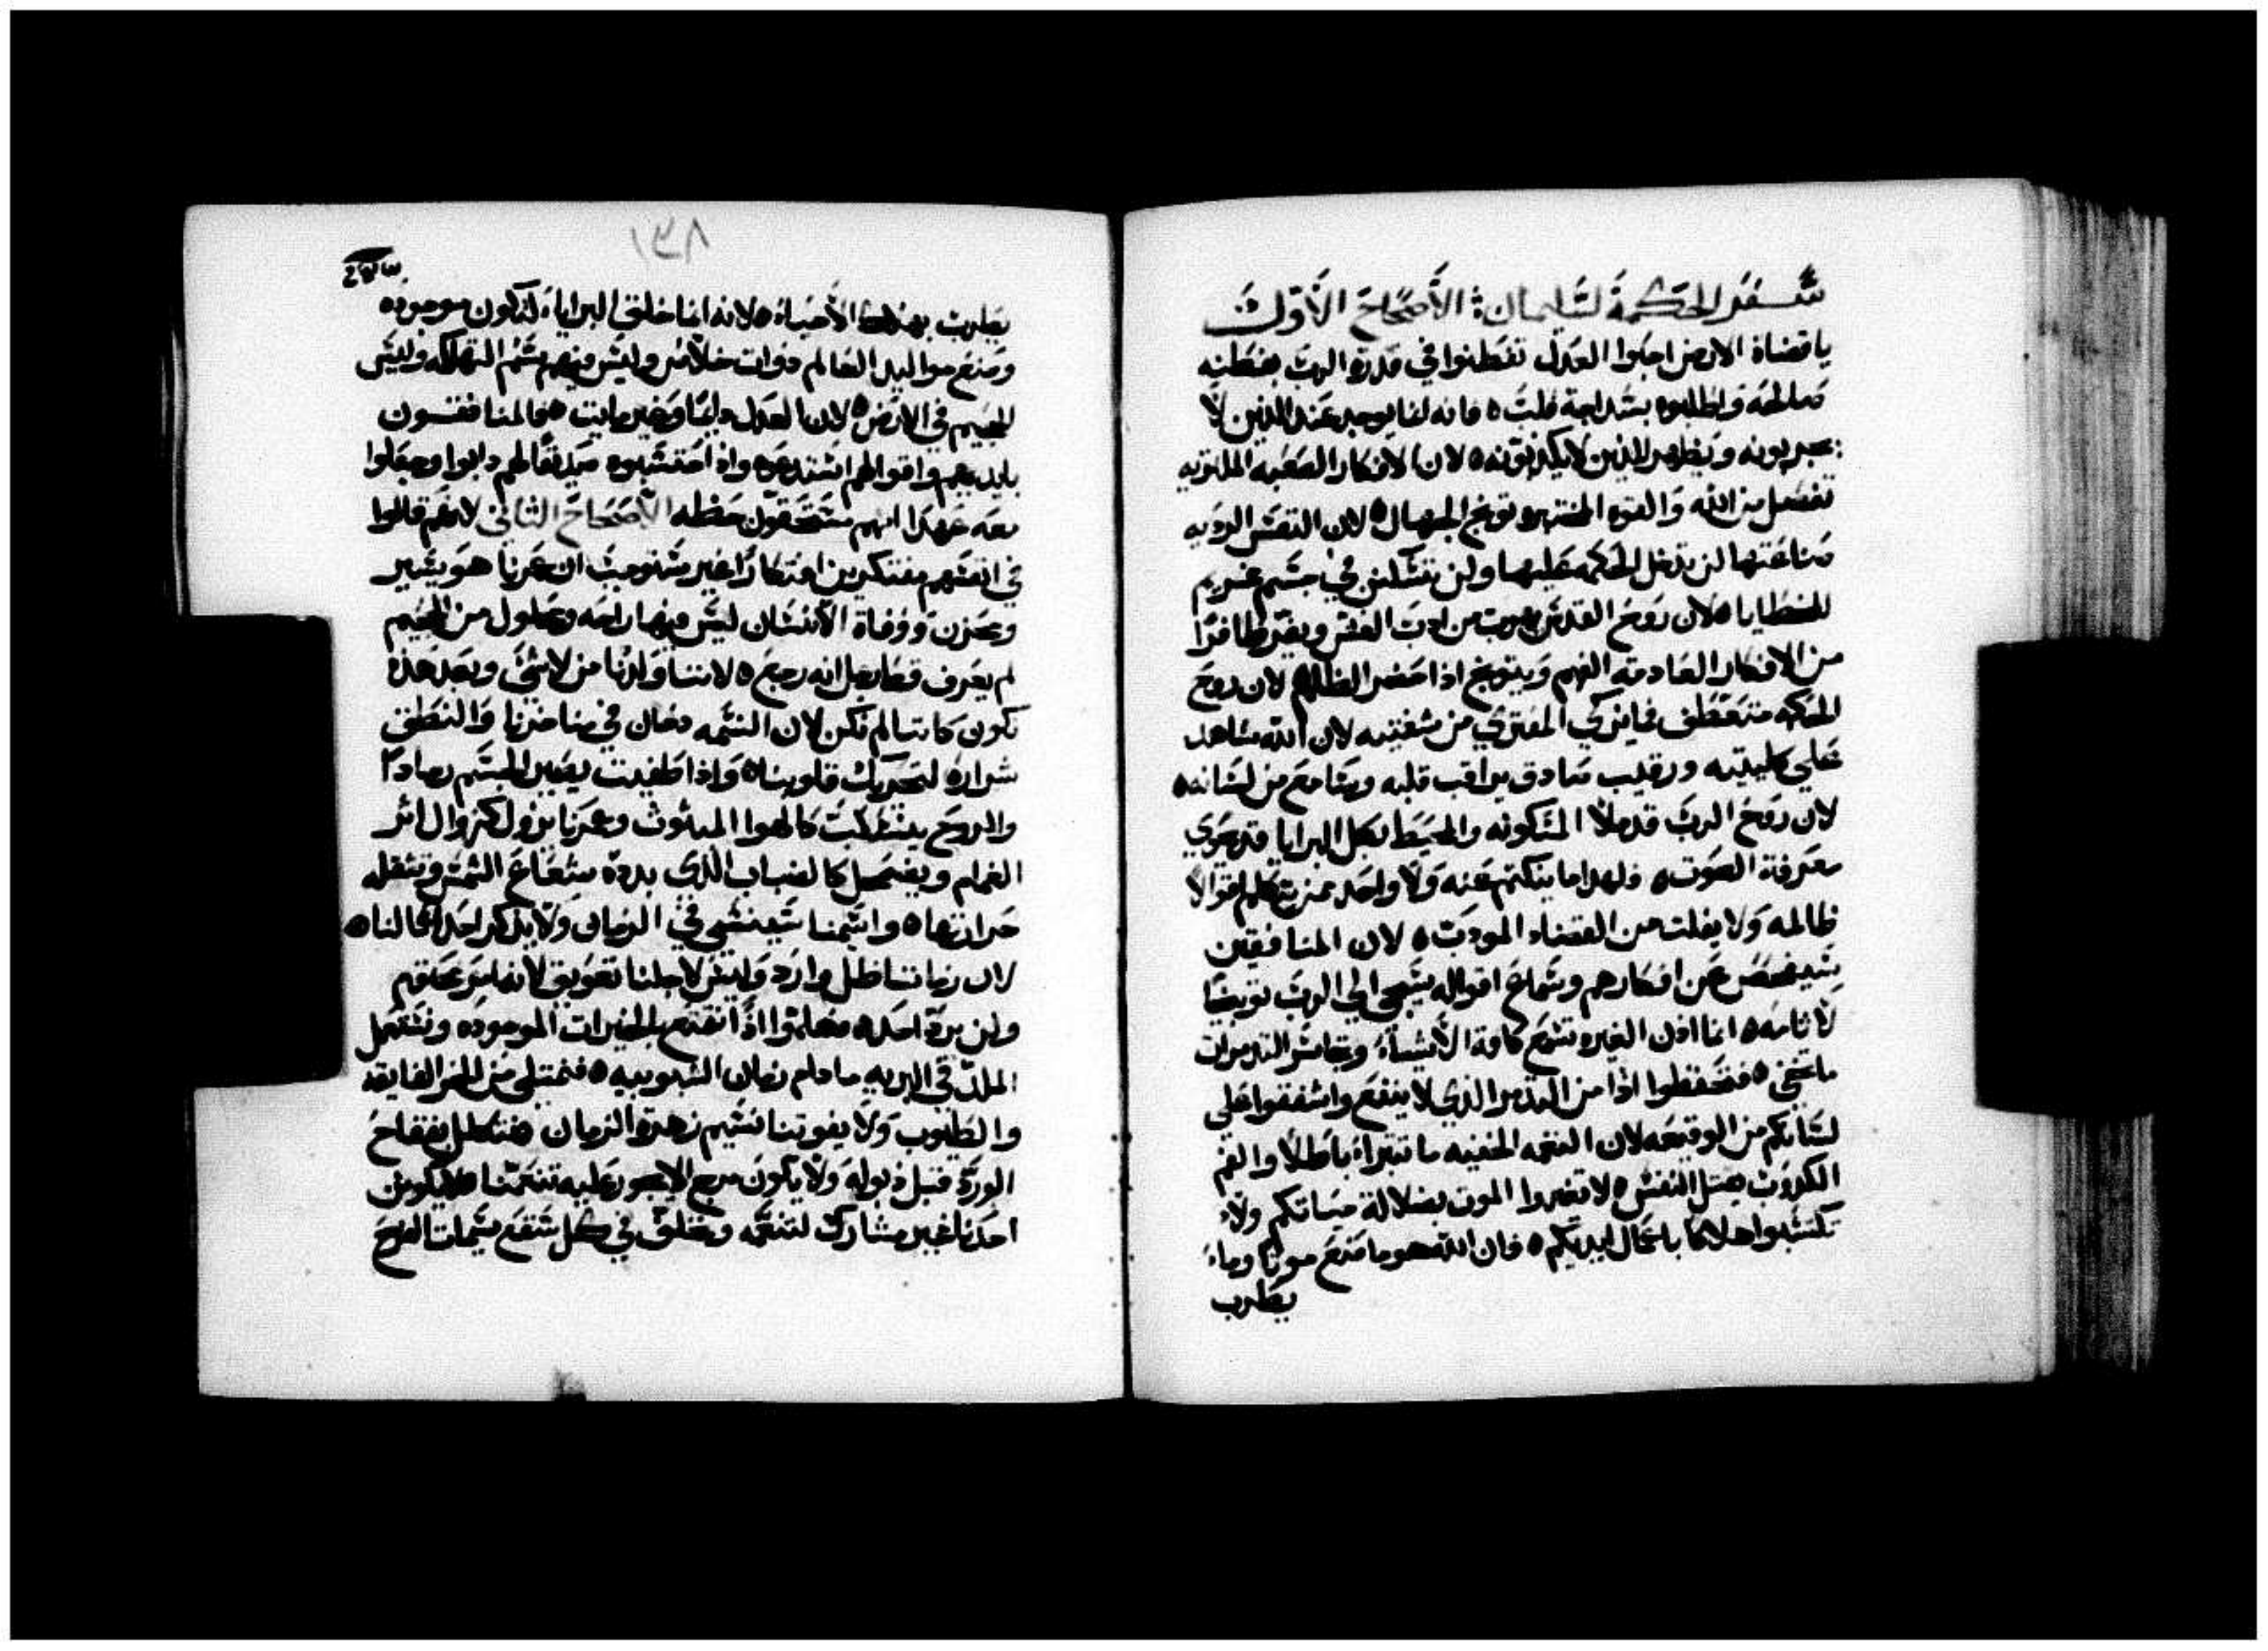 سفر الحكمة لسليمان : الأصحاح الأول
ياقضاة الارض احبوا العدل تفطنوا في قدرة الرب بفطنه
صالحه واطلبوه بسداجة قلب ه فانه انما يوجد عند الذين لا
يجربونه ويظهر للذين لا يكذبونه ه لان الافكار الصعبه الملتويه
تفصل من الله والقوه المختبره توبخ الجهال ه لان النفس الرديه
صناعتها لن تدخل الحكمه عليها ولن تسكن في جسم غريم
للخطايا ه لان روح القدس يهرب من ادب الغش ويفر طافرًا
من الافكار العادمه الفهم ويتوبخ اذا حضر الظلم ه لان روح
الحكمه متعطف فما يزكي المفتري من شفتيه لان الله شاهد
علي كليتيه ورقيب صادق يراقب قلبه وسامع من لسانه ه
لان روح الرب قد ملأ المسكونه والمحيط بكل البرايا قد حوي
معرفة الصوت ه فلهدا ما ينكتم عنه ولا واحد ممن يتكلم اقوالا
ظالمه ولا يفلت من القضاء المودب ه لان المنافقين
سيفحص عن افكارهم وسماع اقواله يسمي الي الرب توبيخا
لآثامه ه انما اذن الغيره تسمع كافة الأشيآء وتجامس التدمرات
ما تخفي ه فتحفظوا اذًا من التدمر الذي لا ينفع واشفقوا علي
لسانكم من الوقيعه لان النغمه الخفيه ما تتبرا باطلا والفم
الكدوب يقتل النفس ه لا تغيروا الموت بضلالة حياتكم ولا
تكتسبوا هلاكا باعمال ايديكم ه فان الله هو ما صنع موتًا وما
يطرب
١٣٨
يطرب بهلاك الأحياء ه لانه انما خلق البرايا لتكون موجوده
وصنع مواليد العالم دوات خلاص وليس فيهم سم التهلكه وليس
للجحيم في الارض ه لان العدل دايمًا وغير مايت ه فالمنافقون
بايديهم واقوالهم استدعوه واذا احتسبوه صديقًا لهم دابوا وجعلوا
معه عهدًا انهم مستحقون حظه الأصحاح الثاني لانهم قالوا
في انفسهم مفتكرين افتكارًا غير مستوجب ان عمرنا هو يسير
وبحزن ووفاة الانسان ليس فيها راحه ومحلول من الجحيم
لم يعرف قط رجل انه رجع ه لاننا ولدنا من لاشي وبعد هذه
نكون كاننا لم نكن لان النسمه دخان في مناخرنا والنطق
شراره لتحريك قلوبنا ه واذا طفيت يصير الجسم رمادًا
والروح ينسكب كالهوا المبثوث وعمرنا يزول كزوال اثر
الغمام ويضمحل كالضباب الذي بدده شعاع الشمس وتثقله
حرارتها ه واسمنا سينسي في الزمان ولا يذكر احد اعمالنا ه
لان زماننا ظل وارد وليس لاجلنا تعويق لانها مختومه
ولن يرد احد ه فهلموا اذًا نتمتع بالخيرات الموجوده ونستعمل
الملذ في البريه ما دام زمان الشبوبيه ه فنمتلي من الخمر الفايقه
والطيوب ولا يفوتنا نسيم زهرة الزمان ه نتكلل بفقاح
الورد قبل ذبوله ولا يكون مرج الا يجوز عليه تنعمنا ه لا يكونن
احدنا غير مشارك لتنعمه ونخلف في كل سقع سيمات الفرح